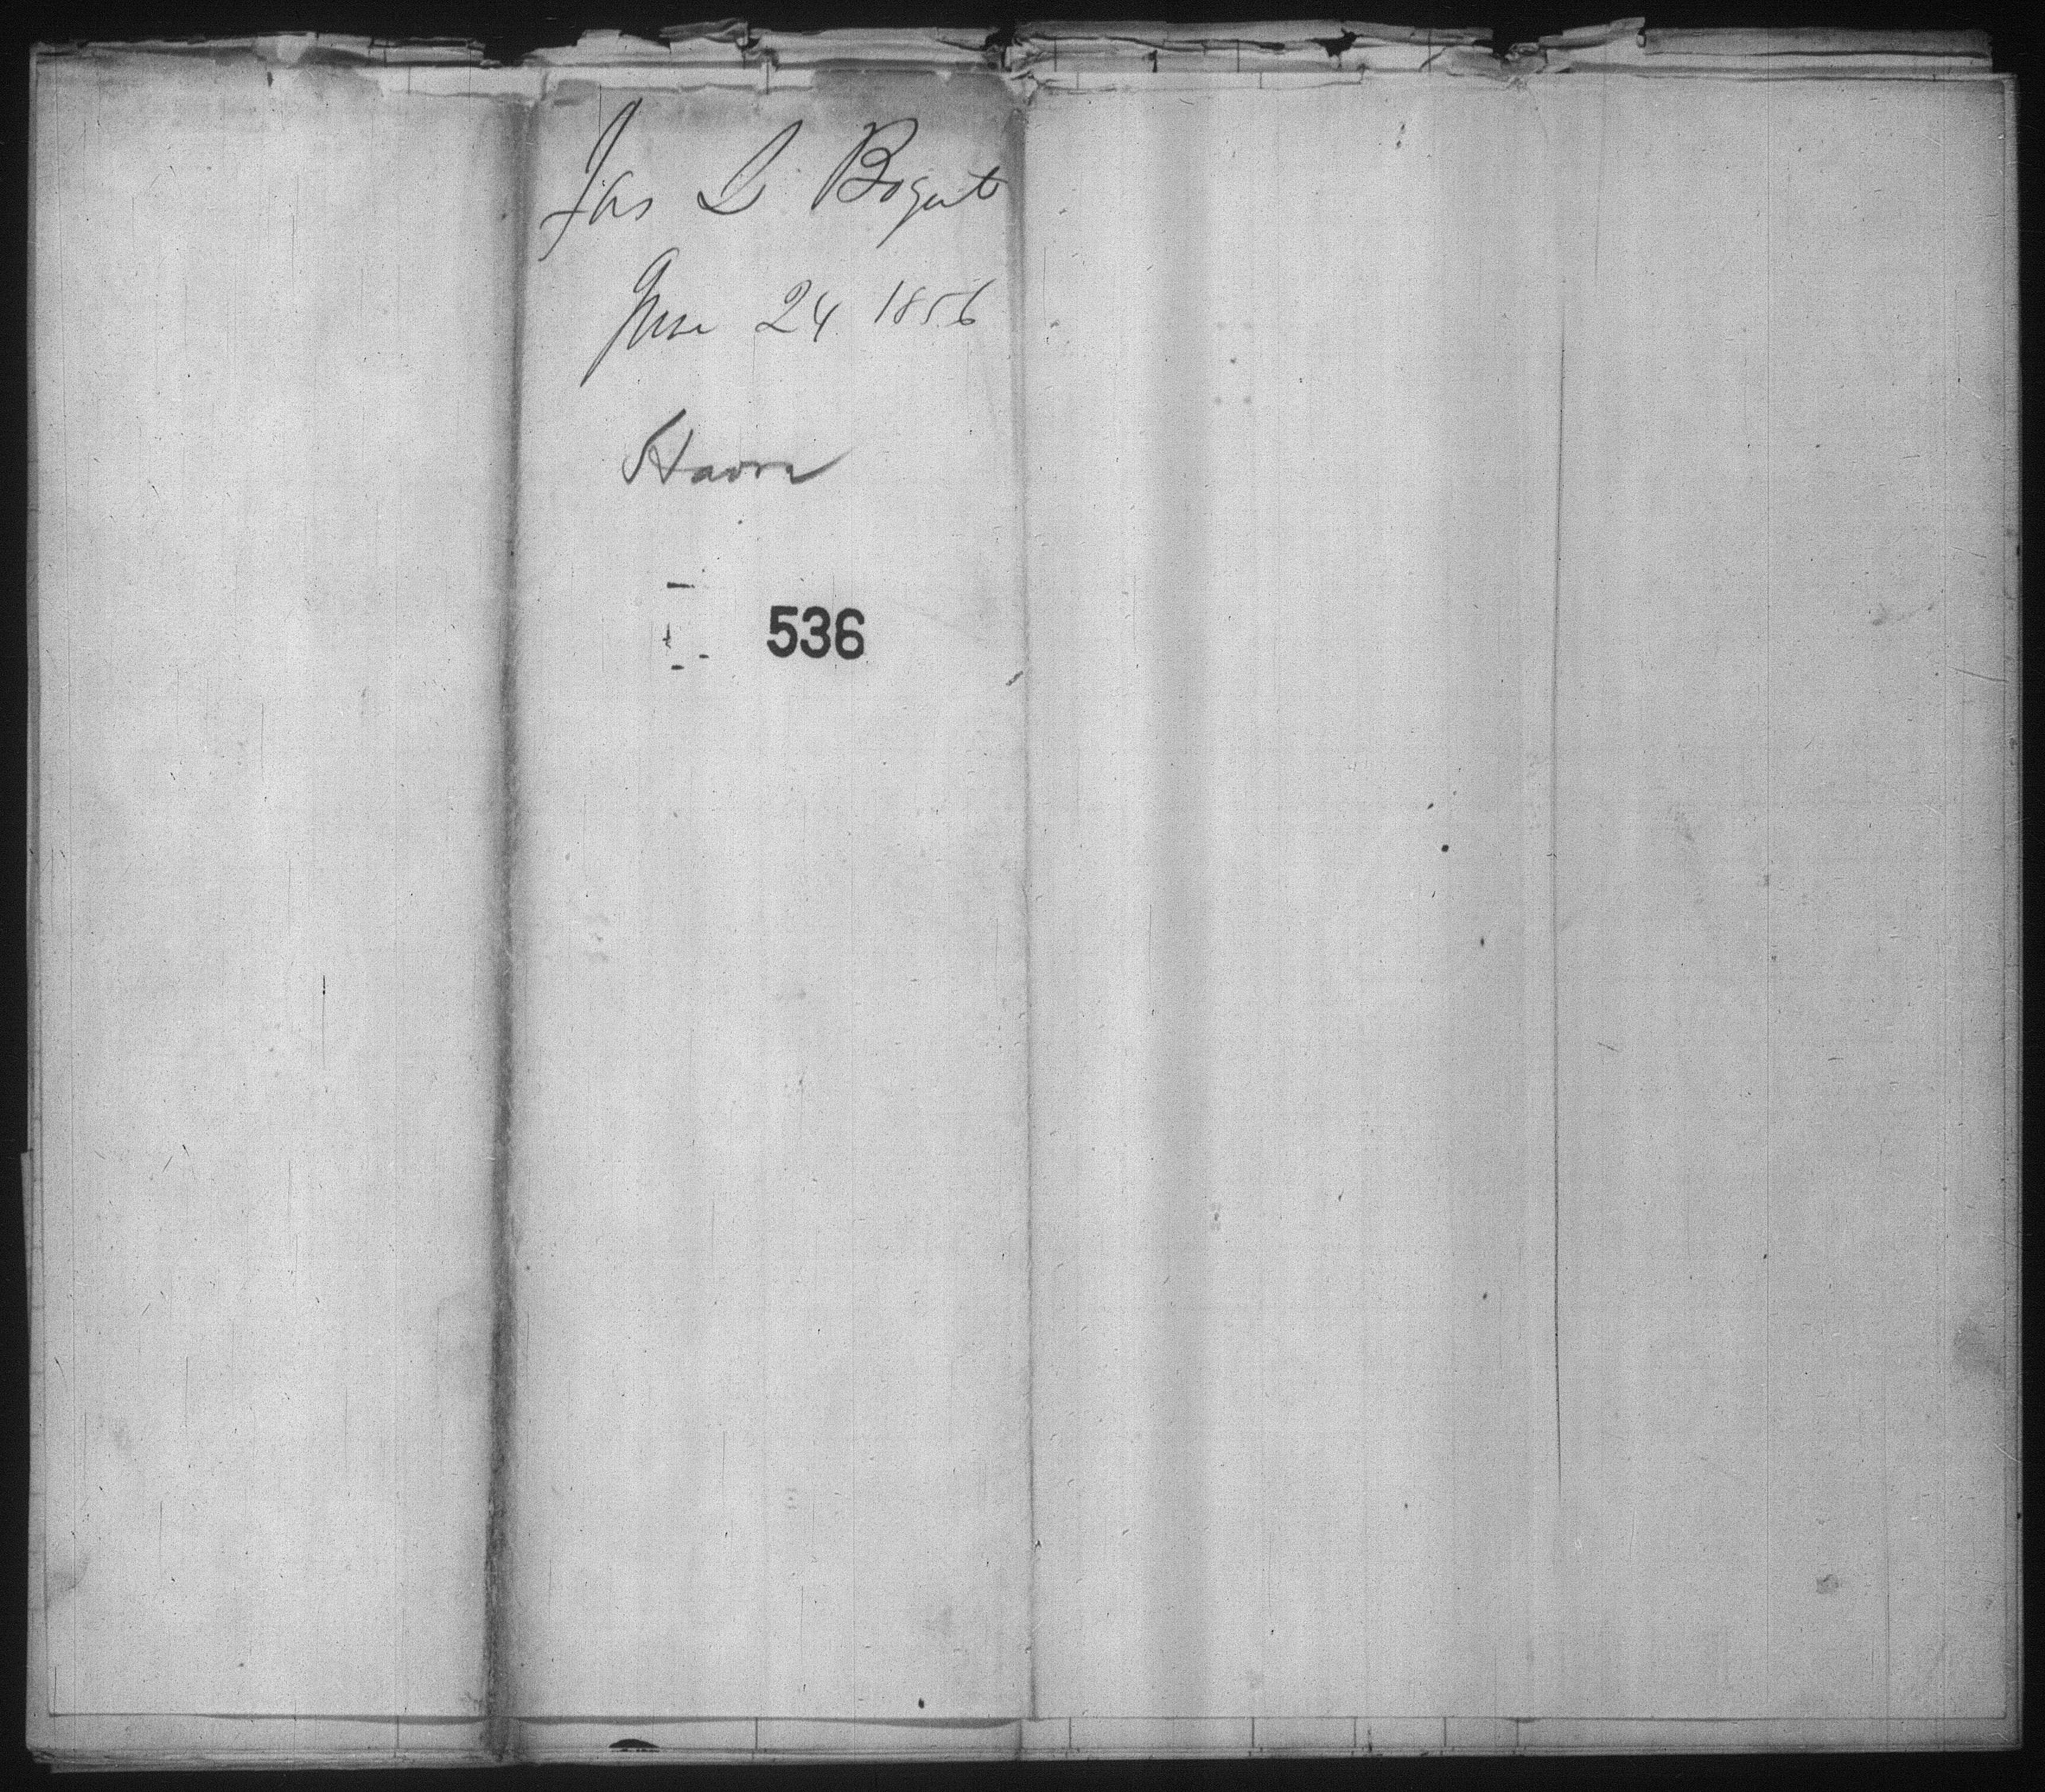 Jas L Bogert
June 24 1856
Havre
536